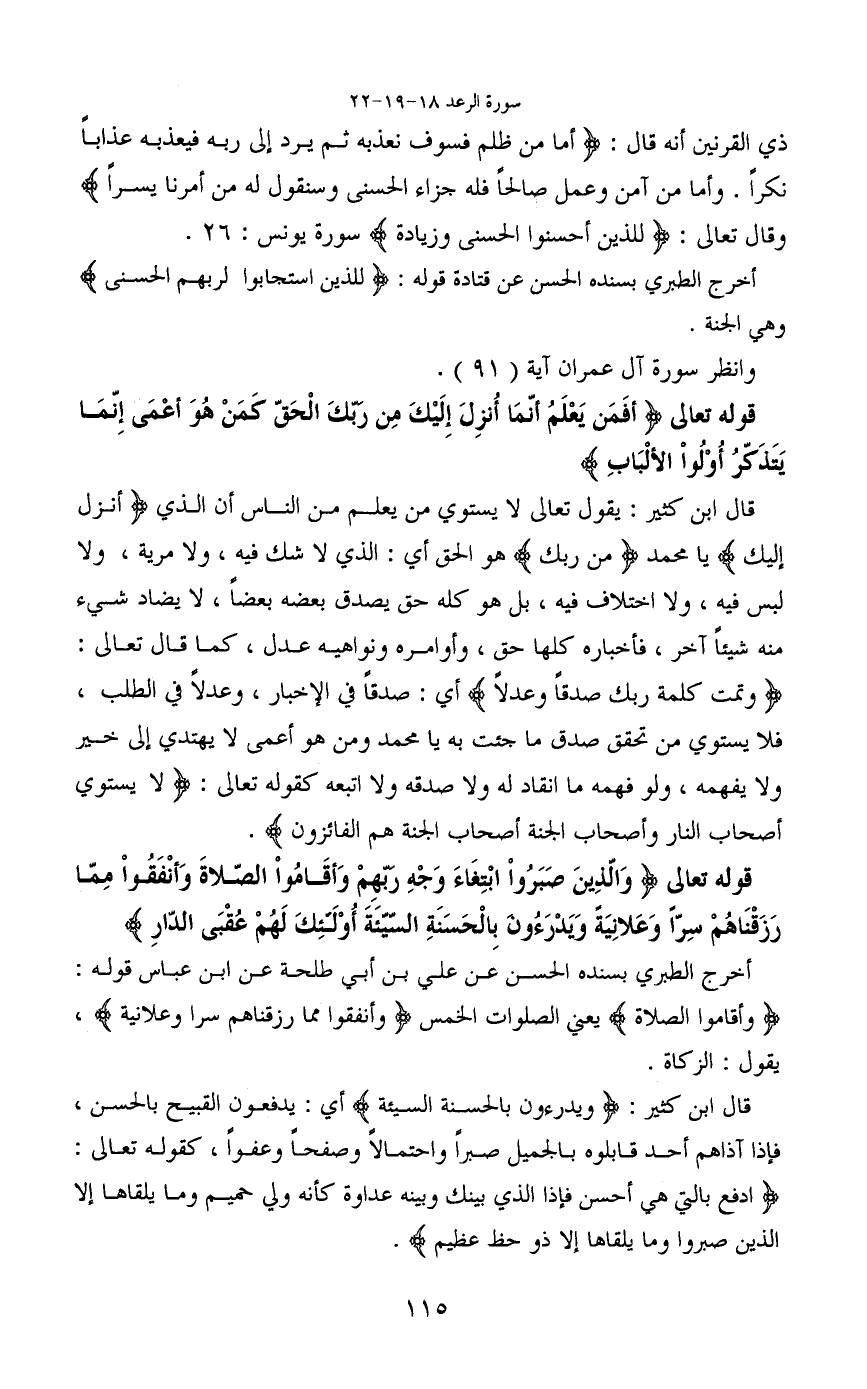 سورة الرعد ١٨-١٩-٢٢
ذي القرنين أنه قال : ﴿ أما من ظلم فسوف نعذبه ثم يرد إلى ربه فيعذبه عذاباً
نكراً . وأما من آمن وعمل صالحاً فله جزاء الحسنى وسنقول له من أمرنا يسراً ﴾
وقال تعالى : ﴿ للذين أحسنوا الحسنى وزيادة ﴾ سورة يونس : ٢٦ .
أخرج الطبري بسنده الحسن عن قتادة قوله : ﴿ للذين استجابوا لربهم الحسنى ﴾
وهي الجنة .
وانظر سورة آل عمران آية ( ٩١ ) .
قوله تعالى ﴿ أَفَمَن يَعْلَمُ أَنّمَا أُنزِلَ إِلَيْكَ مِن رَبّكَ الْحَقّ كَمَنْ هُوَ أعْمَى إِنّمَا
يَتَذَكّرُ أُوْلُواْ الألْبَابِ ﴾
قال ابن كثير : يقول تعالى لا يستوي من يعلم من الناس أن الذي ﴿ أنزل
إليك ﴾ يا محمد ﴿ من ربك ﴾ هو الحق أي : الذي لا شك فيه ، ولا مرية ، ولا
لبس فيه ، ولا اختلاف فيه ، بل هو كله حق يصدق بعضه بعضاً ، لا يضاد شيء
منه شيئاً آخر ، فأخباره كلها حق ، وأوامره ونواهيه عدل ، كما قال تعالى :
﴿ وتمت كلمة ربك صدقاً وعدلاً ﴾ أي : صدقاً في الإخبار ، وعدلاً في الطلب ،
فلا يستوي من تحقق صدق ما جئت به يا محمد ومن هو أعمى لا يهتدي إلى خير
ولا يفهمه ، ولو فهمه ما انقاد له ولا صدقه ولا اتبعه كقوله تعالى : ﴿ لا يستوي
أصحاب النار وأصحاب الجنة أصحاب الجنة هم الفائزون ﴾ .
قوله تعالى ﴿ وَالّذِينَ صَبَرُواْ ابْتِغَاءَ وَجْهِ رَبّهِمْ وَأَقَامُواْ الصّلاةَ وَأَنْفَقُواْ مِمّا
رَزَقْنَاهُمْ سِرّاً وَعَلانِيَةً وَيَدْرَءُونَ بِالْحَسَنَةِ السّيّئَةَ أُوْلَـَئِكَ لَهُمْ عُقْبَى الدّارِ ﴾
أخرج الطبري بسنده الحسن عن علي بن أبي طلحة عن ابن عباس قوله :
﴿ وأقاموا الصلاة ﴾ يعني الصلوات الخمس ﴿ وأنفقوا مما رزقناهم سرا وعلانية ﴾ ،
يقول : الزكاة .
قال ابن كثير : ﴿ ويدرءون بالحسنة السيئة ﴾ أي : يدفعون القبيح بالحسن ،
فإذا آذاهم أحد قابلوه بالجميل صبراً واحتمالاً وصفحاً وعفواً ، كقوله تعالى :
﴿ ادفع بالتي هي أحسن فإذا الذي بينك وبينه عداوة كأنه ولي حميم وما يلقاها إلا
الذين صبروا وما يلقاها إلا ذو حظ عظيم ﴾ .
١١٥